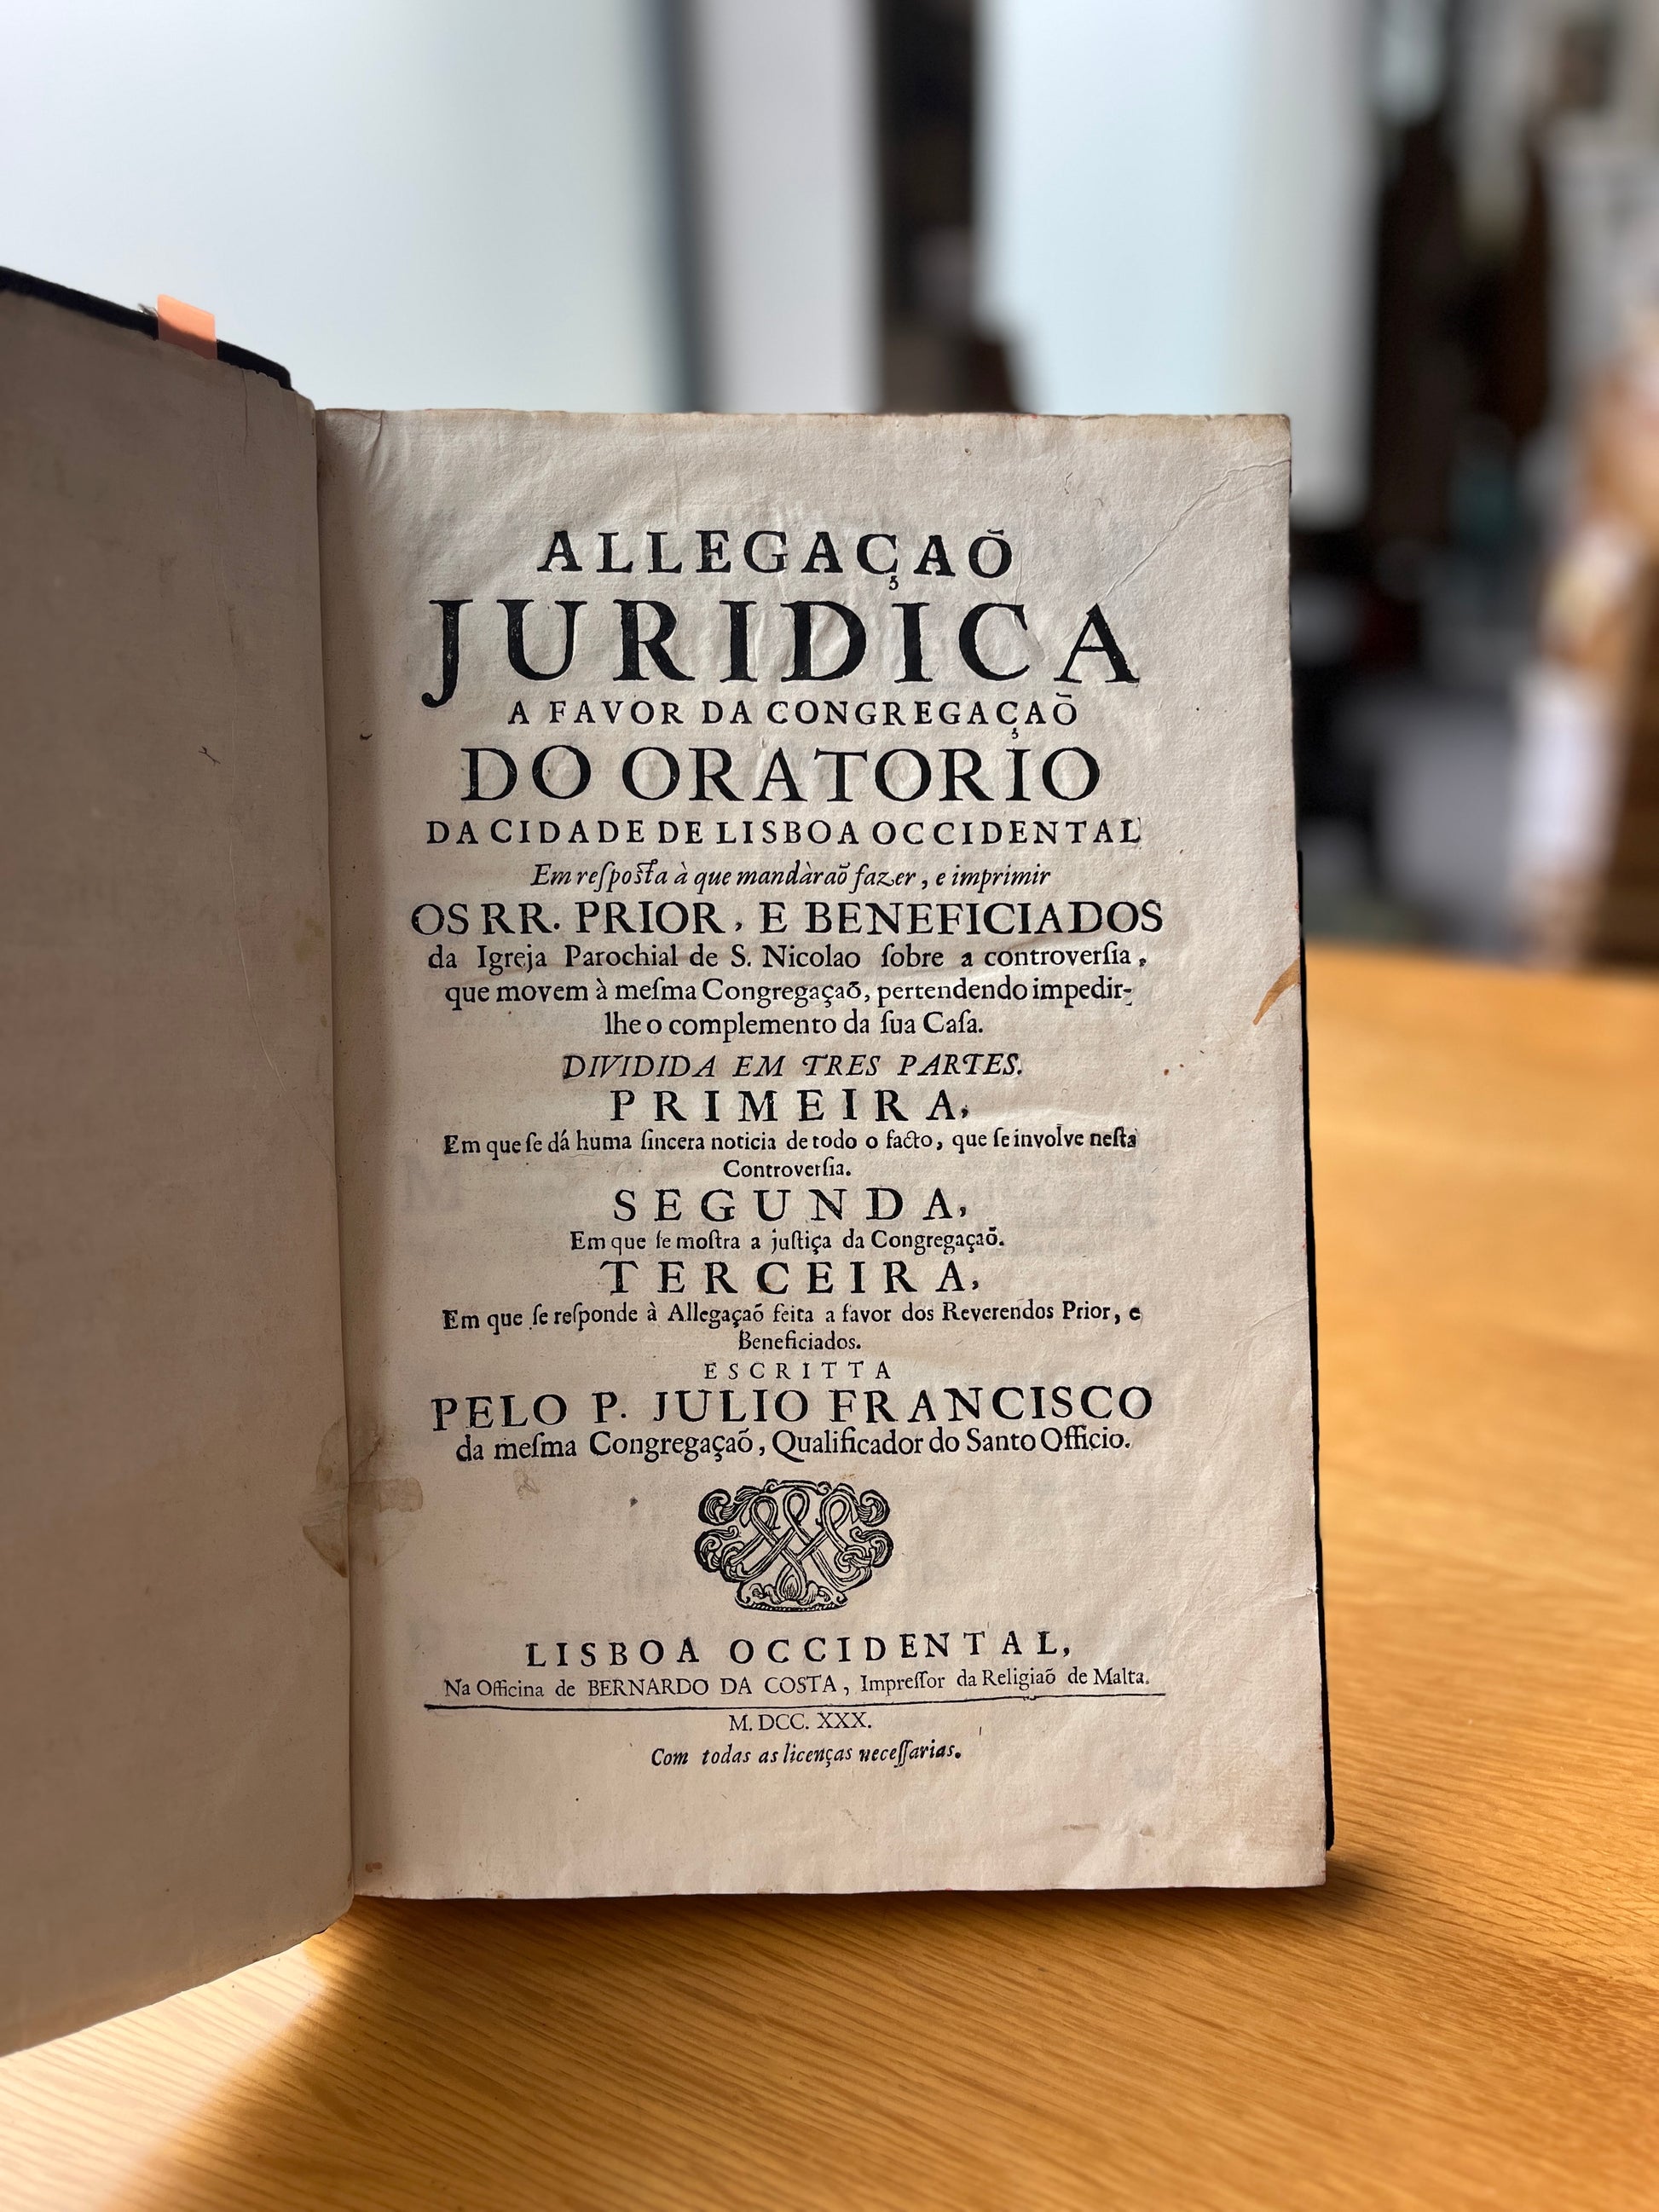 ALLEGAÇAÕ
JURIDICA
A FAVOR DA CONGREGAÇAÕ
DO ORATORIO
DA CIDADE DE LISBOA OCCIDENTAL
Em reſpoſta à que mandàraõ fazer, e imprimir
OS RR. PRIOR, E BENEFICIADOS
da Igreja Parochial de S. Nicolao ſobre a controverſia,
que movem à meſma Congregaçaõ, pertendendo impedir-
lhe o complemento da ſua Caſa.
DIVIDIDA EM TRES PARTES.
PRIMEIRA,
Em que ſe dá huma ſincera noticia de todo o facto, que ſe involve neſta
Controverſia.
SEGUNDA,
Em que ſe moſtra a juſtiça da Congregaçaõ.
TERCEIRA,
Em que ſe reſponde à Allegaçaõ feita a favor dos Reverendos Prior, e
Beneficiados.
ESCRITTA
PELO P. JULIO FRANCISCO
da meſma Congregaçaõ, Qualificador do Santo Officio.
LISBOA OCCIDENTAL,
Na Officina de BERNARDO DA COSTA, Impreſſor da Religiaõ de Malta.
M. DCC. XXX.
Com todas as licenças neceſſarias.